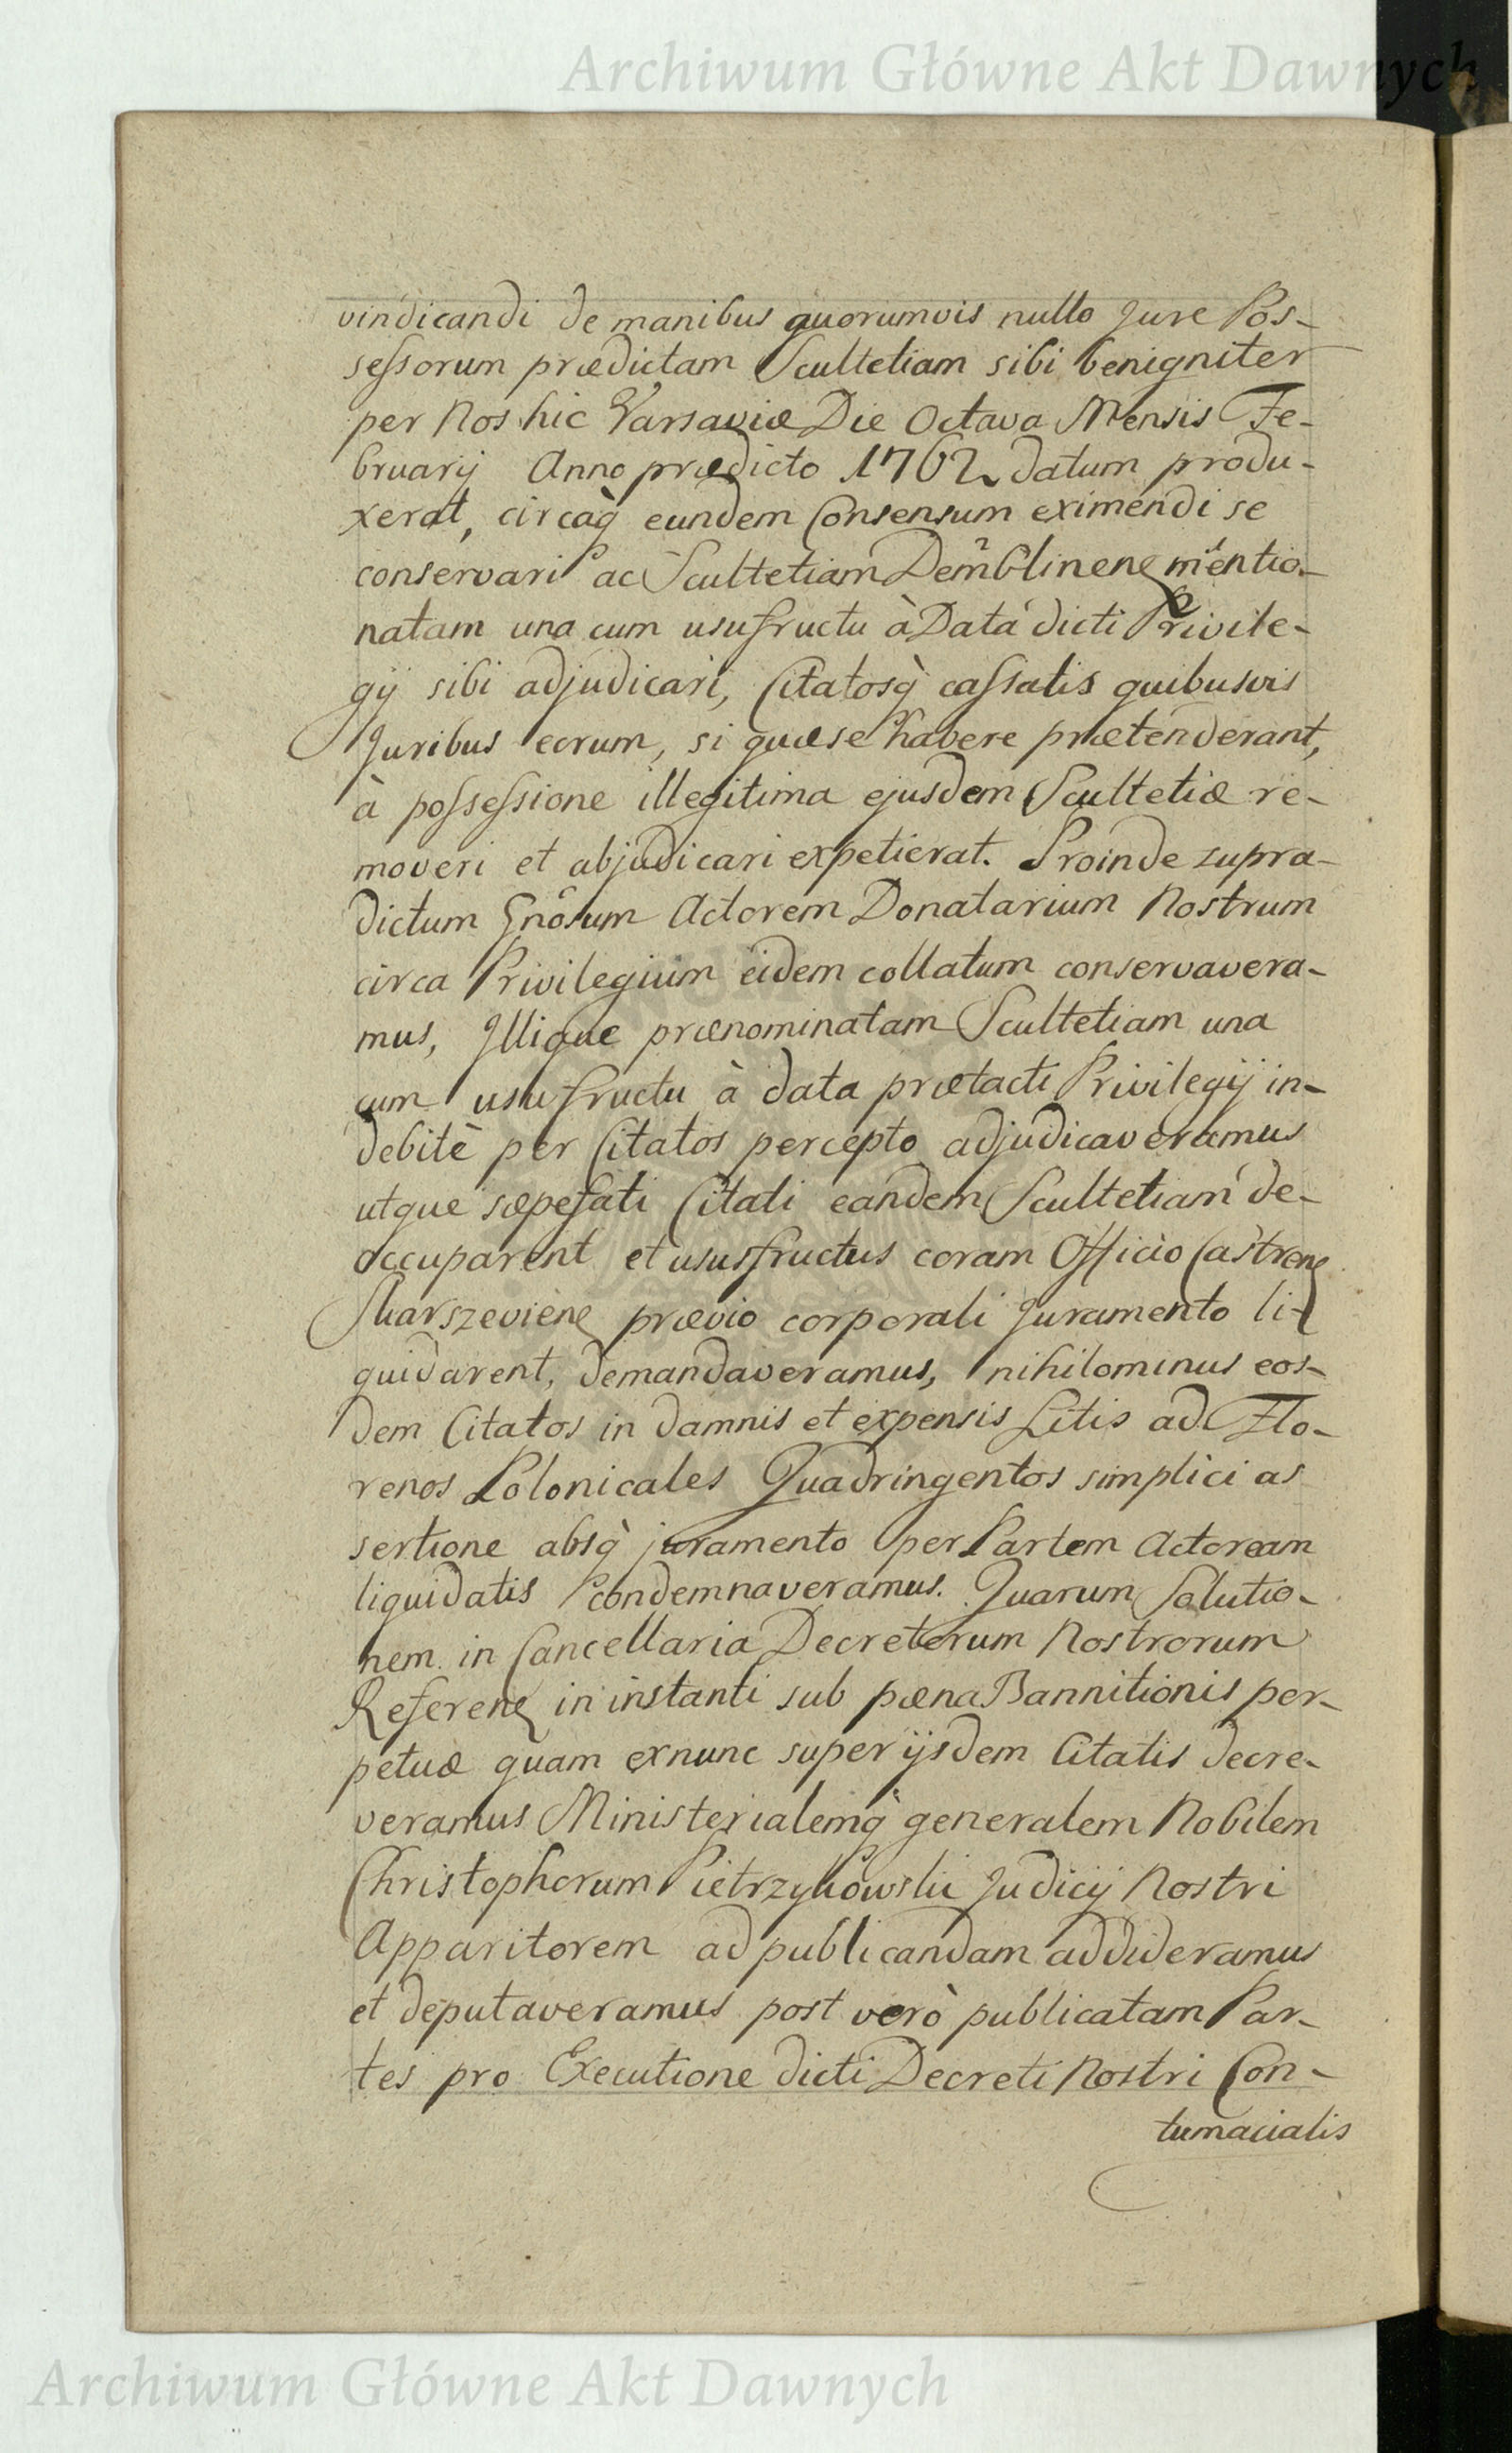 Archiwum Główne Akt Dawnych
vindicandi de manibus quorumvis nullo Jure Pos-
seſsorum prædictam Scultetiam sibi benigniter
per Nos hic Varsaviæ Die Octava Mensis Fe-
bruarij Anno prædicto 1762 datum produ-
xerat, circaq̀ eundem Consensum eximendi se
conservari ac Scultetiam mentio-
natam una cum usufructu à Data dicti Privile-
gij sibi adjudicari, Citatosq̀ caſsatis quibusvis
Juribus eorum, si quæ se habere prætenderant,
à poſseſsione illegitima ejusdem Scultetiæ re-
moveri et abjudicari expetierat. Proinde supra-
dictum Gnosum Actorem Donatarium Nostrum
circa Privilegium eidem collatum conservavera-
mus, Illique prænominatam Scultetiam una
cum usufructu à data prætacti Privilegij in-
debitè per Citatos percepto adjudicaveramus
utque sæpefati Citati eandem Scultetiam de-
occuparent et ususfructus coram Officio Castren
Skarszevien prævio corporali Juramento li-
quidarent, demandaveramus, nihilominus eos-
dem Citatos in damnis et expensis Litis ad Flo-
renos Polonicales Quadringentos simplici as
sertione absq̀ juramento per Partem Actoream
liquidatis condemnaveramus. Quarum Solutio-
nem in Cancellaria Decretorum Nostrorum
Referen in instanti sub pæna Bannitionis per-
petuæ quam exnunc super ijsdem Citatis decre-
veramus Ministerialemq̀ generalem Nobilem
Christophorum Pietrzykowski Judicij Nostri
Apparitorem ad publicandam addideramus
et deputaveramus post verò publicatam Par-
tes pro Executione dicti Decreti Nostri Con-
tumacialis
Archiwum Główne Akt Dawnych